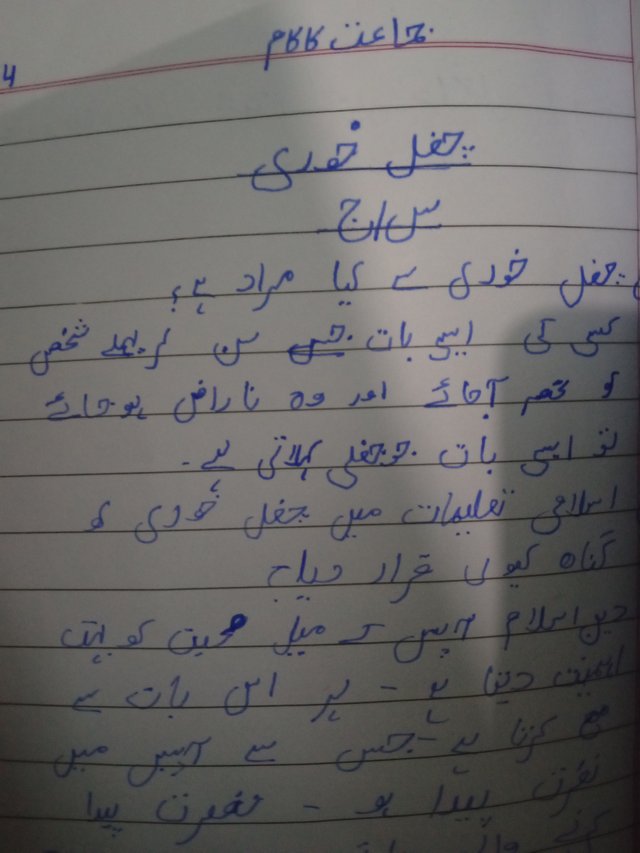 جماعت کا کام
4
چغل خوری
س/ج
چغل خوری سے کیا مراد ہے؟
کسی کی ایسی بات جس سن کر پہلے شخص
کو غصہ آجائے اور وہ ناراض ہو جائے
تو ایسی بات چغلی کہلاتی ہے۔
اسلامی تعلیمات میں چغل خوری کو
گناہ کیوں قرار دیا
دین اسلام آپس کے میل محبت کو بہت
اہمیت دیتا ہے - ہر اس بات سے
منع کرتا ہے - جس سے آپس میں
نفرت پیدا ہو - نفرت پیدا
کرنے والی